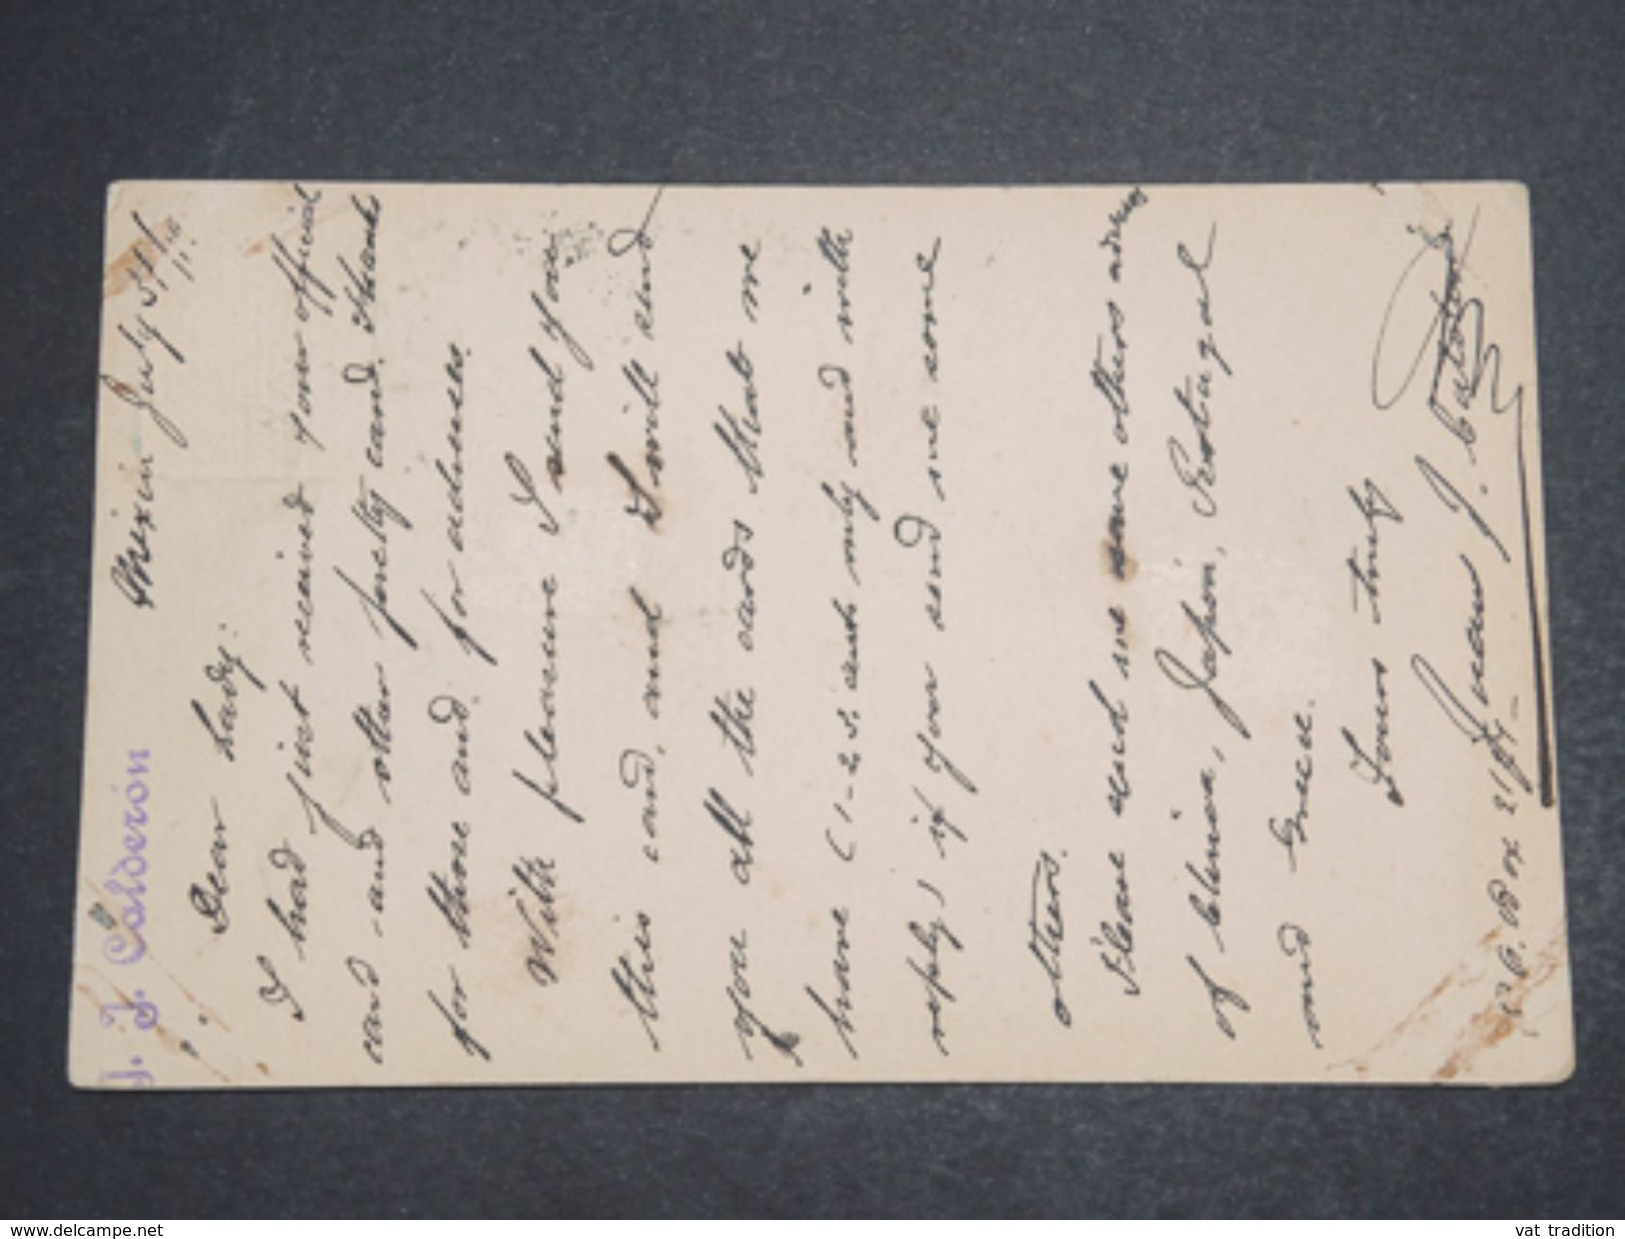 J. J. Calderón
Mexico July 31/
Dear Lady:
I had just received your official
card and other pretty card. Thank
for those and for adresses.
With pleasure I send you
this card, and I will send
you all the cards that we
have (1-2-5, cent only and with
reply) if you send me some
others.
Please send me some others adress
of China, Japon, Portugal
and Greece.
Yours truly
Juan J. Calderón
P.O. Box 21
www.delcampe.net
vat tradition